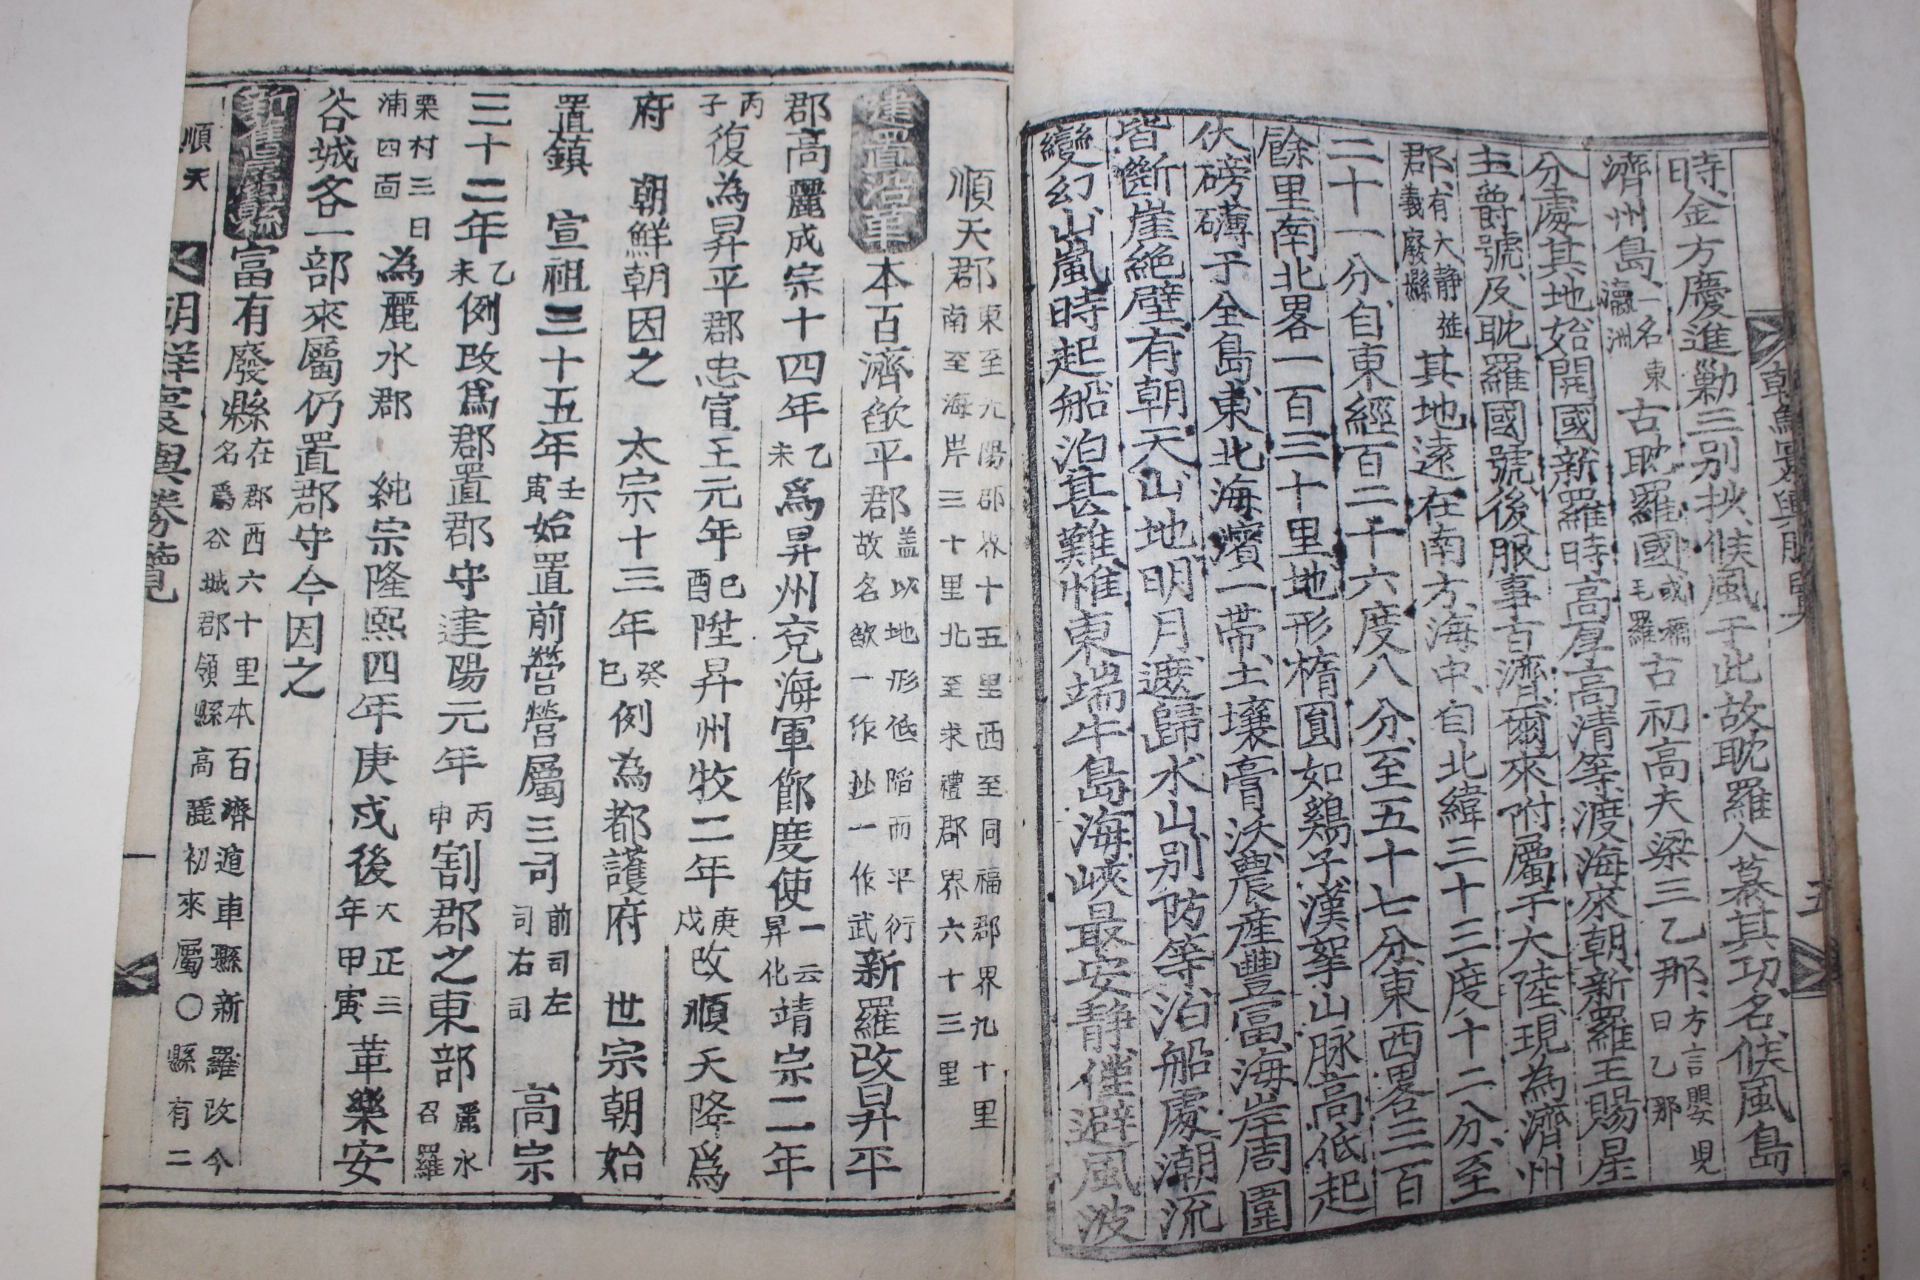 時金方慶進勦三別抄候風于此故耽羅人慕其功名候風島
濟州島一名東瀛洲古耽羅國或稱毛羅古初高夫梁三乙那方言嬰兒曰乙那
分處其地始開國新羅時高厚高清等渡海來朝新羅王賜星
主爵號及耽羅國號後服事百濟爾來附屬于大陸現為濟州
郡有大靜旌義廢縣其地遠在南方海中自北緯三十三度十二分至
二十一分自東經百二十六度八分至五十七分東西畧三百
餘里南北畧一百三十里地形楕圓如鷄子漢拏山脉高低起
伏磅礴于全島東北海濱一帶土壤膏沃農産豐富海岸周圍
皆斷崖絶壁有朝天山地明月遮歸水山別防等泊船處潮流
變幻山嵐時起船泊甚難惟東端牛島海峽最安静僅避風波
順天郡東至光陽郡界十五里西至同福郡界九十里南至海岸三十里北至求禮郡界六十三里
建置沿革本百濟欿平郡盖以地形低陷而平衍故名欿一作抄一作武新羅改昇平
郡高麗成宗十四年乙未爲昇州兗海軍節度使一云昇化靖宗二年
丙子復為昇平郡忠宣王元年己酉陞昇州牧二年庚戌改順天降爲
府 朝鮮朝因之 太宗十三年癸巳例為都護府 世宗朝始
置鎮 宣祖三十五年壬寅始置前營營屬三司前司左司右司 高宗
三十二年乙未例改爲郡置郡守建陽元年丙申割郡之東部麗水召羅
栗村三日浦四面為麗水郡 純宗隆熙四年庚戌後大正三年甲寅革樂安
谷城各一部來屬仍置郡守今因之
新舊屬縣富有廢縣在郡西六十里本百濟遁車縣新羅改今名爲谷城郡領縣高麗初來屬○縣有二
順天
朝鮮寰輿勝覽
一